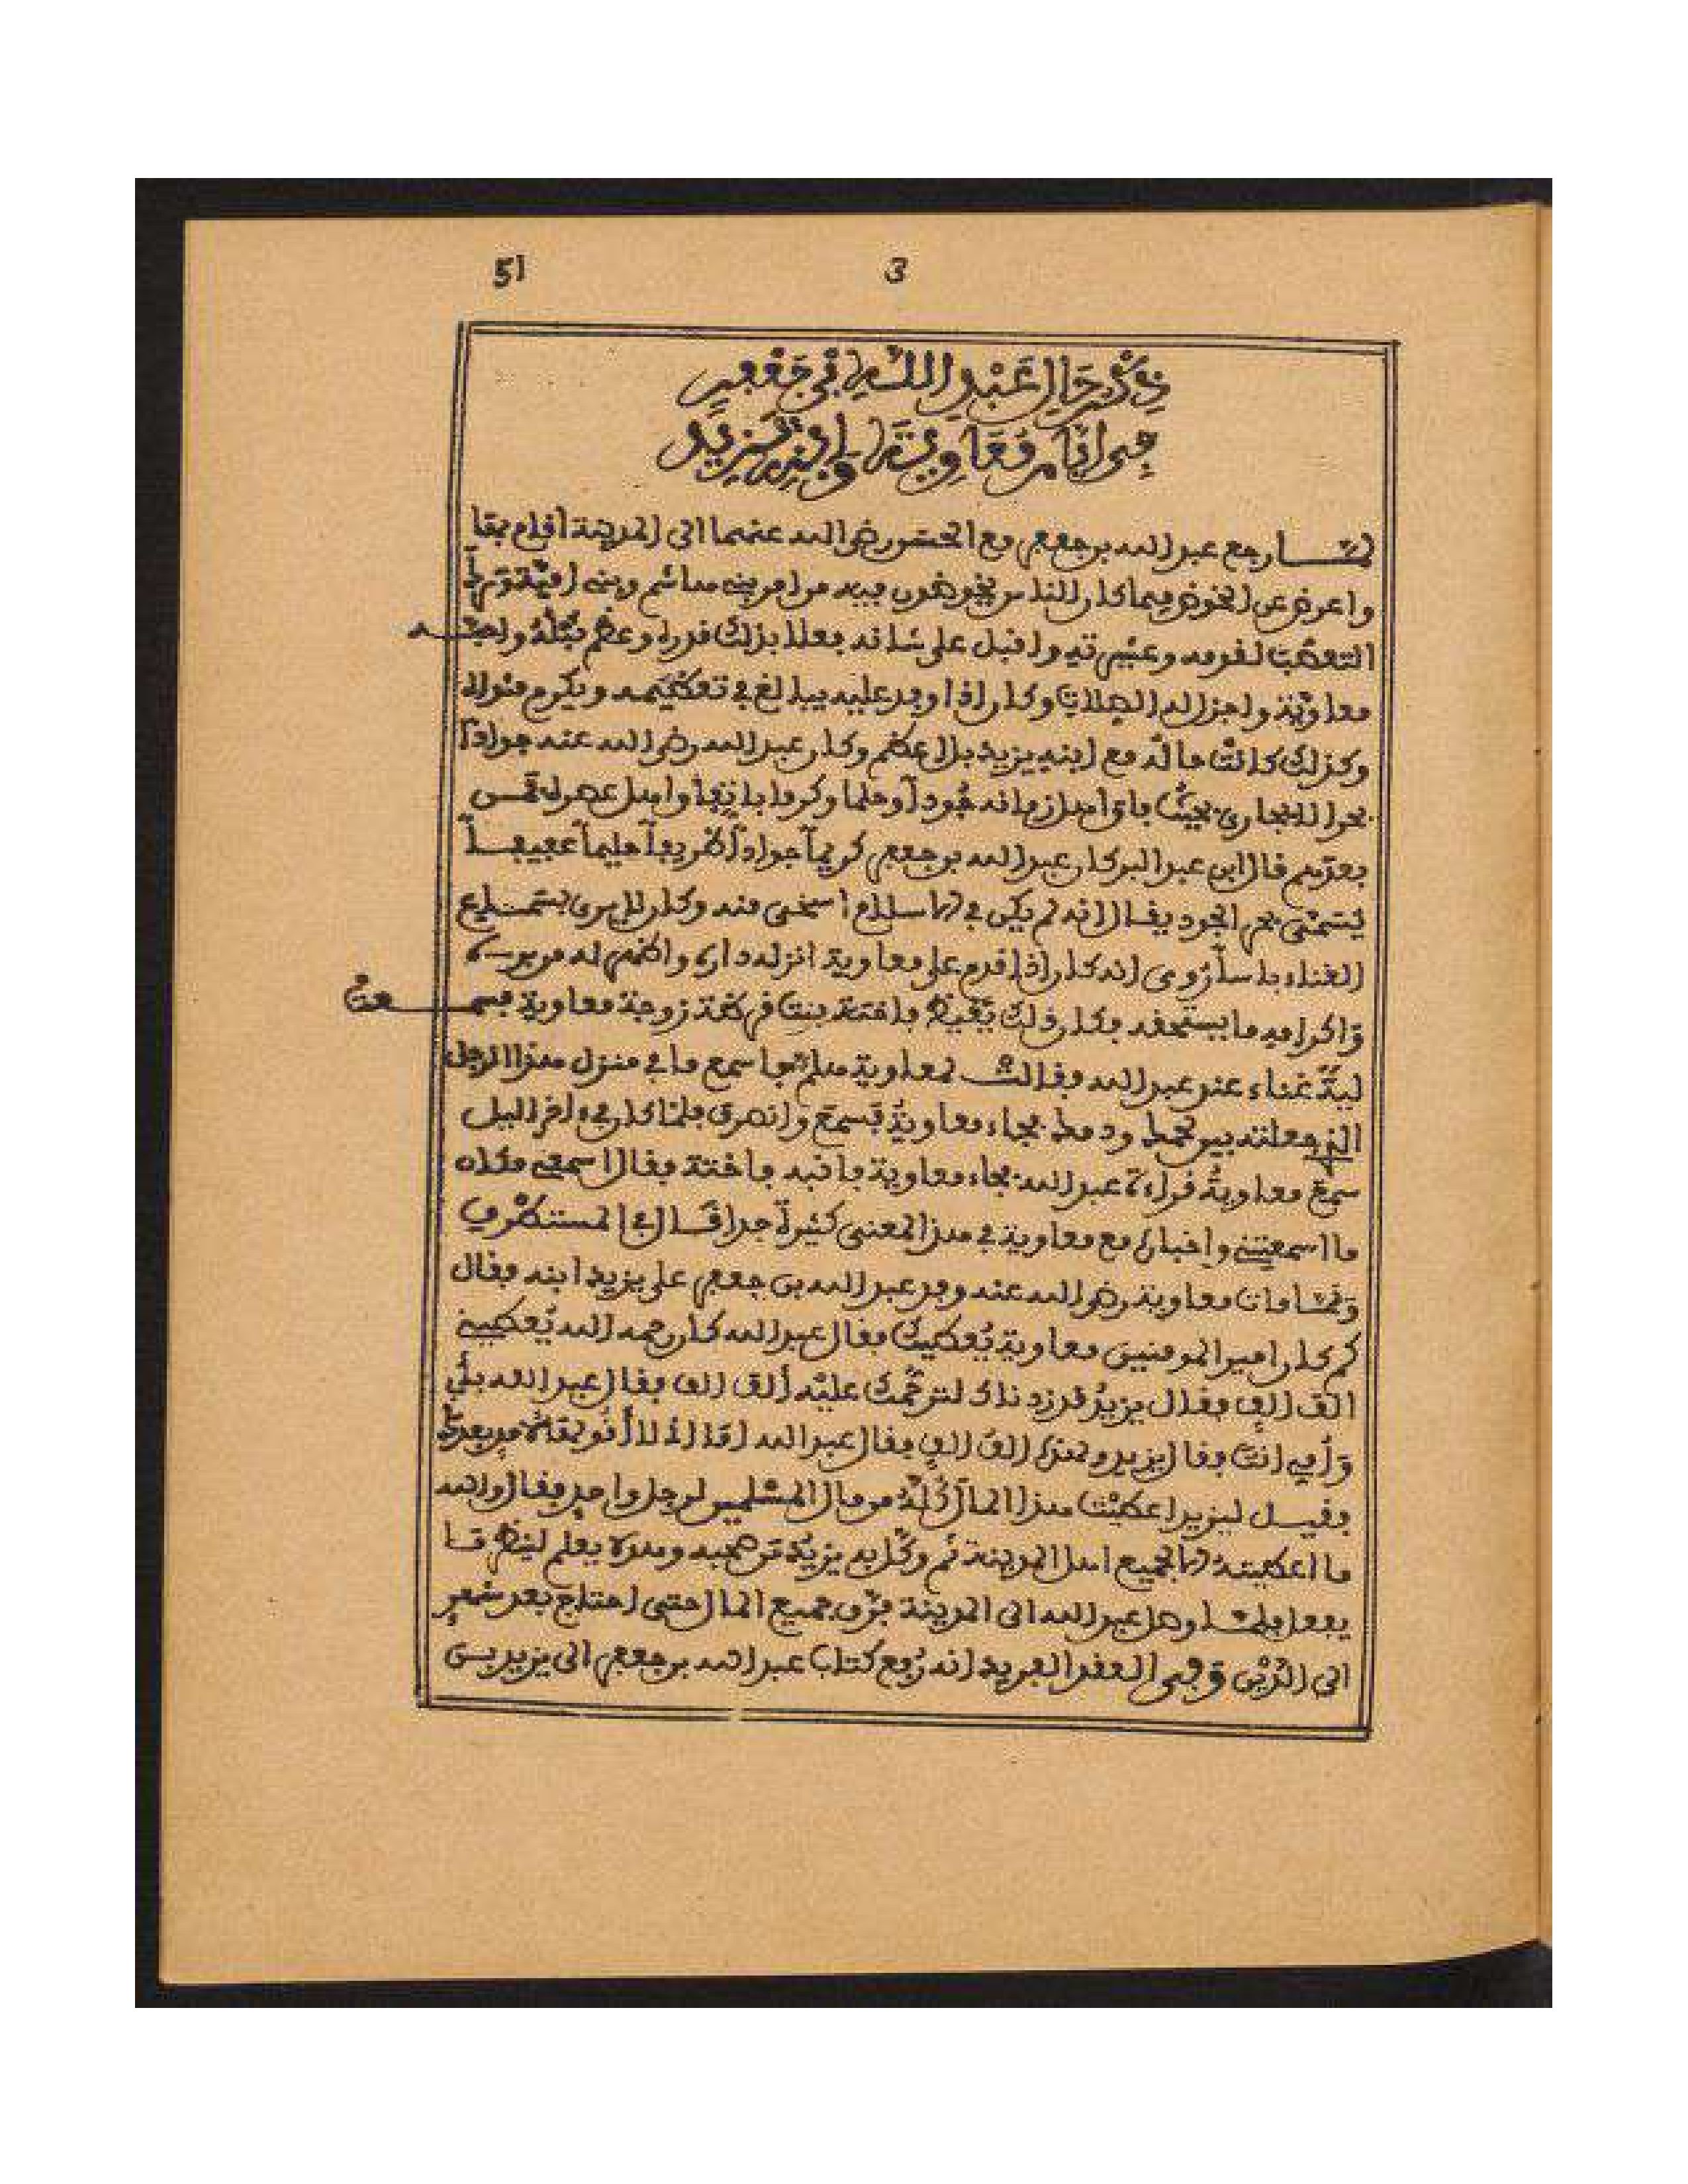 51 3
ذكر حال عبد الله بن جعفر
في ايام معاوية وابنه يزيد
لمـــا رجع عبد الله بن جعفر مع الحسن رضي الله عنهما الى المدينة اقام بها
واعرض عن الخوض فيما كان الناس يخوضون فيه من امر بني هاشم وبني امية وترك
التعصب لقومه وعشيرته واقبل على شانه فعلا بذلك قدره وعظم نبله واحبــه
معاوية واجزل له الصلات وكان اذا وفد عليه يبالغ في تعظيمه ويكرم منزله
وكذلك كانت حاله مع ابنه يزيد بل اعظم وكان عبد الله رضي الله عنه جوادا
بحرا لا يجارى بحيث فاق اهل زمانه جودا وحلما وكرما باتفا واهل عصره فمن
بعدهم قال ابن عبد البر كان عبد الله بن جعفر كريما جوادا ظريفا حليما عفيفـا
يسمى بحر الجود يقال انه لم يكن في الاسلام اسخى منه وكان لا يرى بسمـاع
الغناء باسا رُوي انه كان اذا قدم على معاوية انزله داره واظهر له من بره
وَاكرامه ما يستحقه فكان ذلك يَغيظ فاختة بنت قرظة زوجة معاوية فسمــعت
ليلة غناء عند عبد الله فقالت لمعاوية هلم فاسمع ما في منزل هذا الرجل
الذي جعلته بين لحمك ودمك فجاء معاوية فسمع وانصرف فلما كان في ءاخر الليل
سمع معاوية قراءة عبد الله فجاء معاوية فانبه فاختة فقال اسمعي مكان
ما اسمعتني واخباره مع معاوية في هذا المعنى كثيرة جدا قـال في المستظرف
ولمــا مات معاوية رضي الله عنه وفد عبد الله بن جعفر على يزيد ابنه فقال
كم كان امير المومنين معاوية يُعطيك فقال عبد الله كان رحمه الله يُعطيني
الف الف فقال يزيد قد زدناك لترحمك عليه ألف الف فقال عبد الله بأبي
وأمي انت فقال يزيد ولهذه الف الف فقال عبد الله اما اني لا أقولها لاحد بعدك
فقيـل ليزيد اعطيت هذا المال كله من مال المسلمين لرجل واحد فقال والله
ما اعطيته الا لجميع اهل المدينة ثم وكل به يزيد من صحبه وهو لا يعلم لينظر مـا
يفعل فلمـا وصل عبد الله الى المدينة فرّق جميع المال حتى احتاج بعد شهر
الى الدَّيْن وفي العقد الفريد انه رُفع كتاب عبد الله بن جعفر الى يزيد بـن